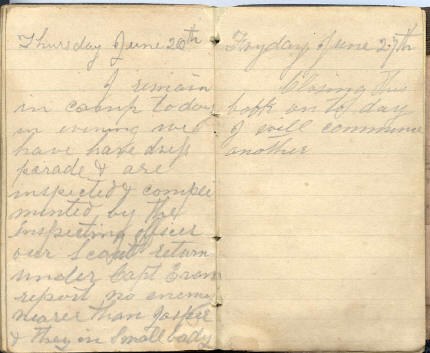 Thursday June 26th
I remain
in camp today
in evening we
have have dress
parade & are
inspected & comple
minted by the
inspecting officer
our Scout return
under Capt Evans
report no enemy
nearer than Jasper
& they in small body
Fryday June 27th
Closing this
book on to day
I will commence
another